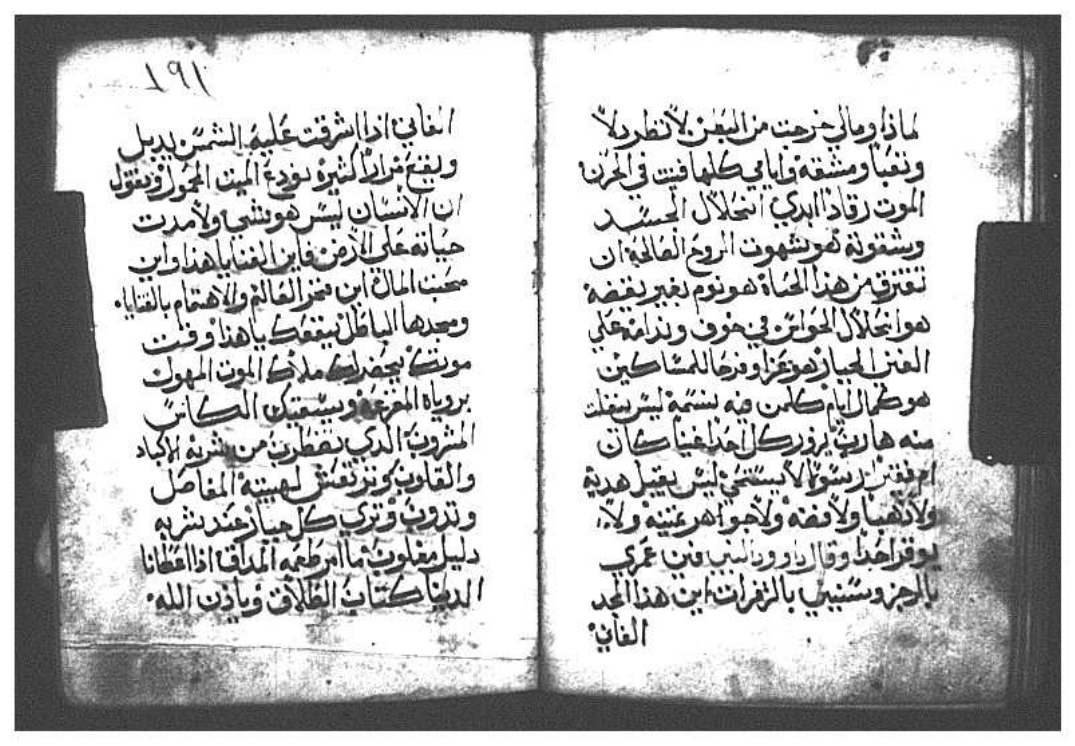 لماذا ومالي خرجت من البطن لانظر ويلاً
وتعباً ومشقه وايامي كلها فنيت في الحزن
الموت رقاداً ابدي انحلال الجسد
وشقوته هو شهوت الروح الصالحة ان
تفترق من هذا الحياة هو نوم بغير يقضة
هو انحلال الحواس في خوف وندامة علي
الغني الجبار هو عزا وفرحا للمساكين
هو كمال ايام كلمن فيه نسمة ليس ينفلت
منه هارب يزور كل احد غنياً كان
ام فقير رسولاً لا يستحي ليس يقبل هدية
ولا ذهباً ولا فضه ولا جواهر غنيه ولا
يوقر احداً وقال داوود النبي فني عمري
بالرجز وسنيني بالزفرات اين هذا المجد
الفاني
١٩١
الفاني اذا اشرقت عليه الشمس يدبل
ويقع مراراً كثيرة نودع الميت المحمول ونقول
ان الانسان ليس هو شي ولا مدت
حياته علي الارض فاين الغنا يا هذا واين
محبة المال اين فخر العالم والاهتمام بالقنايا
ومجدها الباطل ينفعك يا هذا وقت
موتك يحضر لك ملاك الموت المهول
بروياه المفزعه ويسقيك الكاس
المشروب الذي تنفطر من شربه الاكباد
والقلوب وترتعش لهيبته المفاصل
وتذوب وتري كل جبار عند شربه
دليل مغلوب ما امر طعمه المداق اذا اعطانا
الدنيا كتاب الطلاق وباذن الله